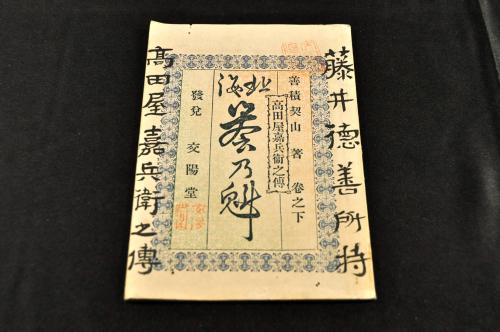 藤井德善所持
善積契山 著 卷之下
高田屋嘉兵衛之傳
北海
乃魁
發兌 交陽堂
髙田屋嘉兵衛之傳